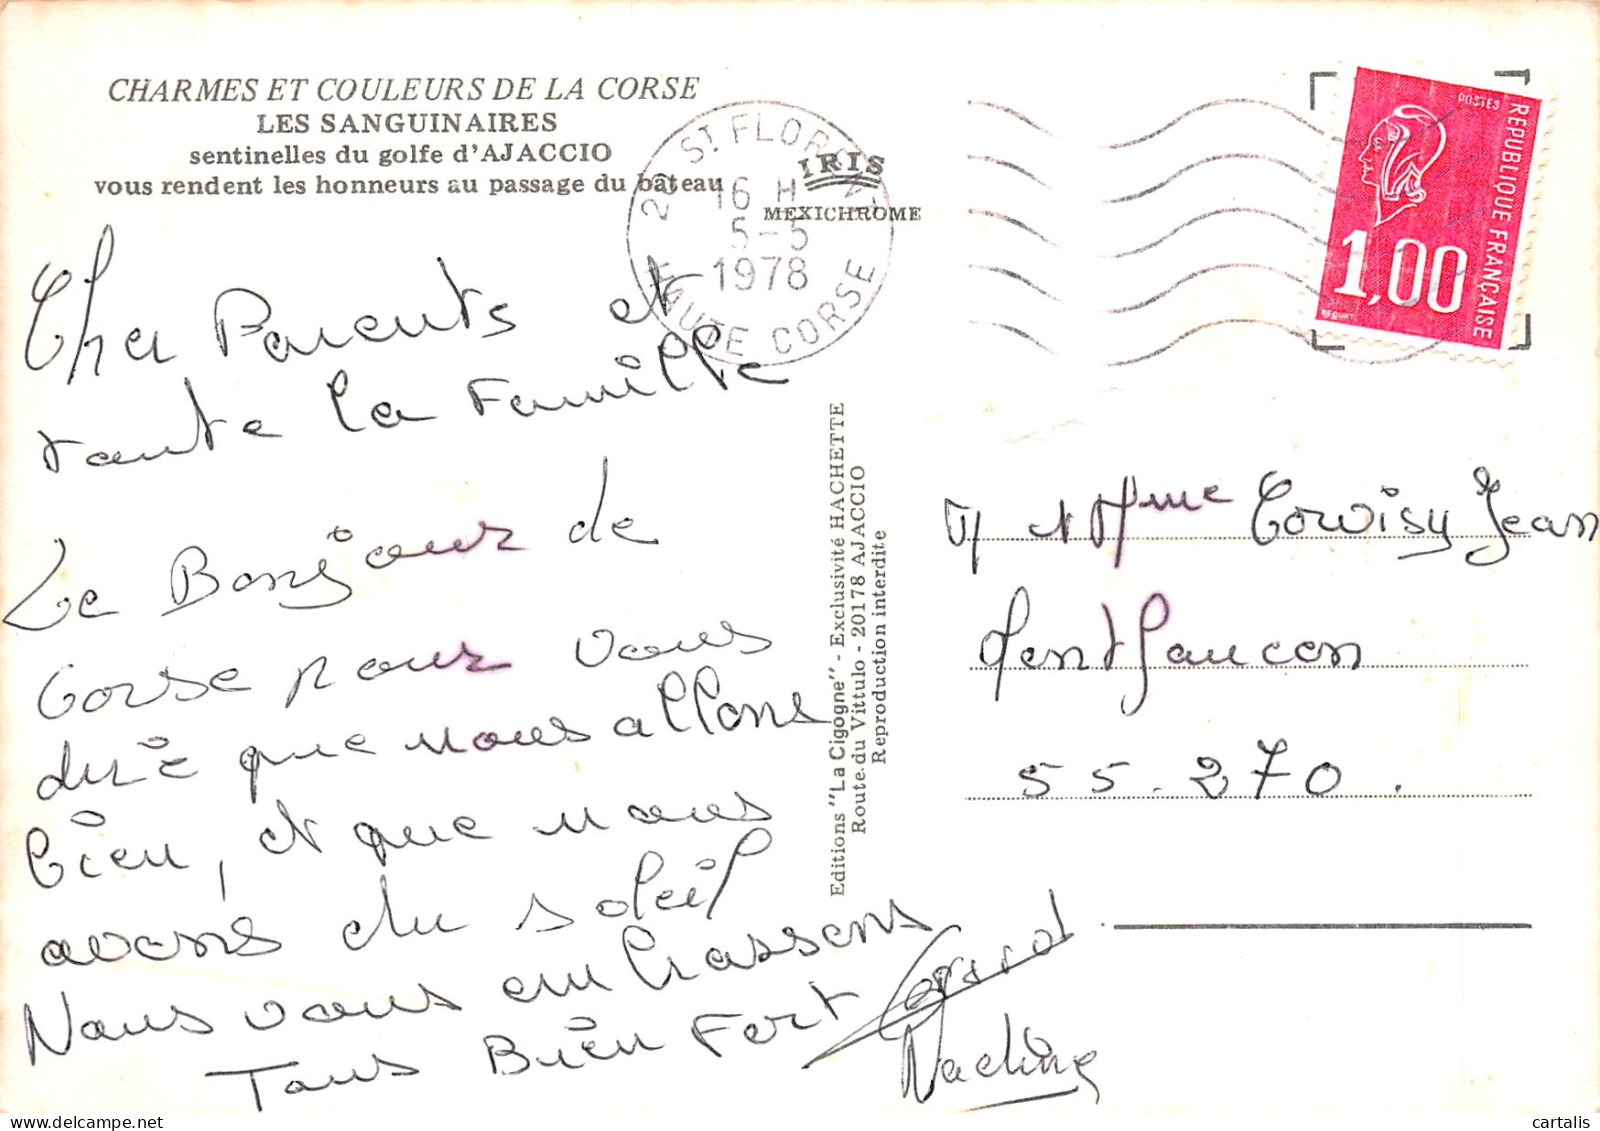 CHARMES ET COULEURS DE LA CORSE
LES SANGUINAIRES
sentinelles du golfe d'AJACCIO
vous rendent les honneurs au passage du bateau
IRIS
MEXICHROME
2 ST FLORENT
16 H
5-5
1978
HAUTE CORSE
POSTES
REPUBLIQUE FRANÇAISE
1,00
BEQUET
Cher Parents et
toute la Famille
Le Bonjour de
Corse pour vous
dire que nous allons
bien, et que nous
avons du soleil
Nous vous embrassons
Tous Bien Fort
Gérard
Nadine
Editions "La Cigogne" - Exclusivité HACHETTE
Route du Vittulo - 20178 AJACCIO
Reproduction interdite
M et Mme Corvisy Jean
Montfaucon
55.270.
cartalis